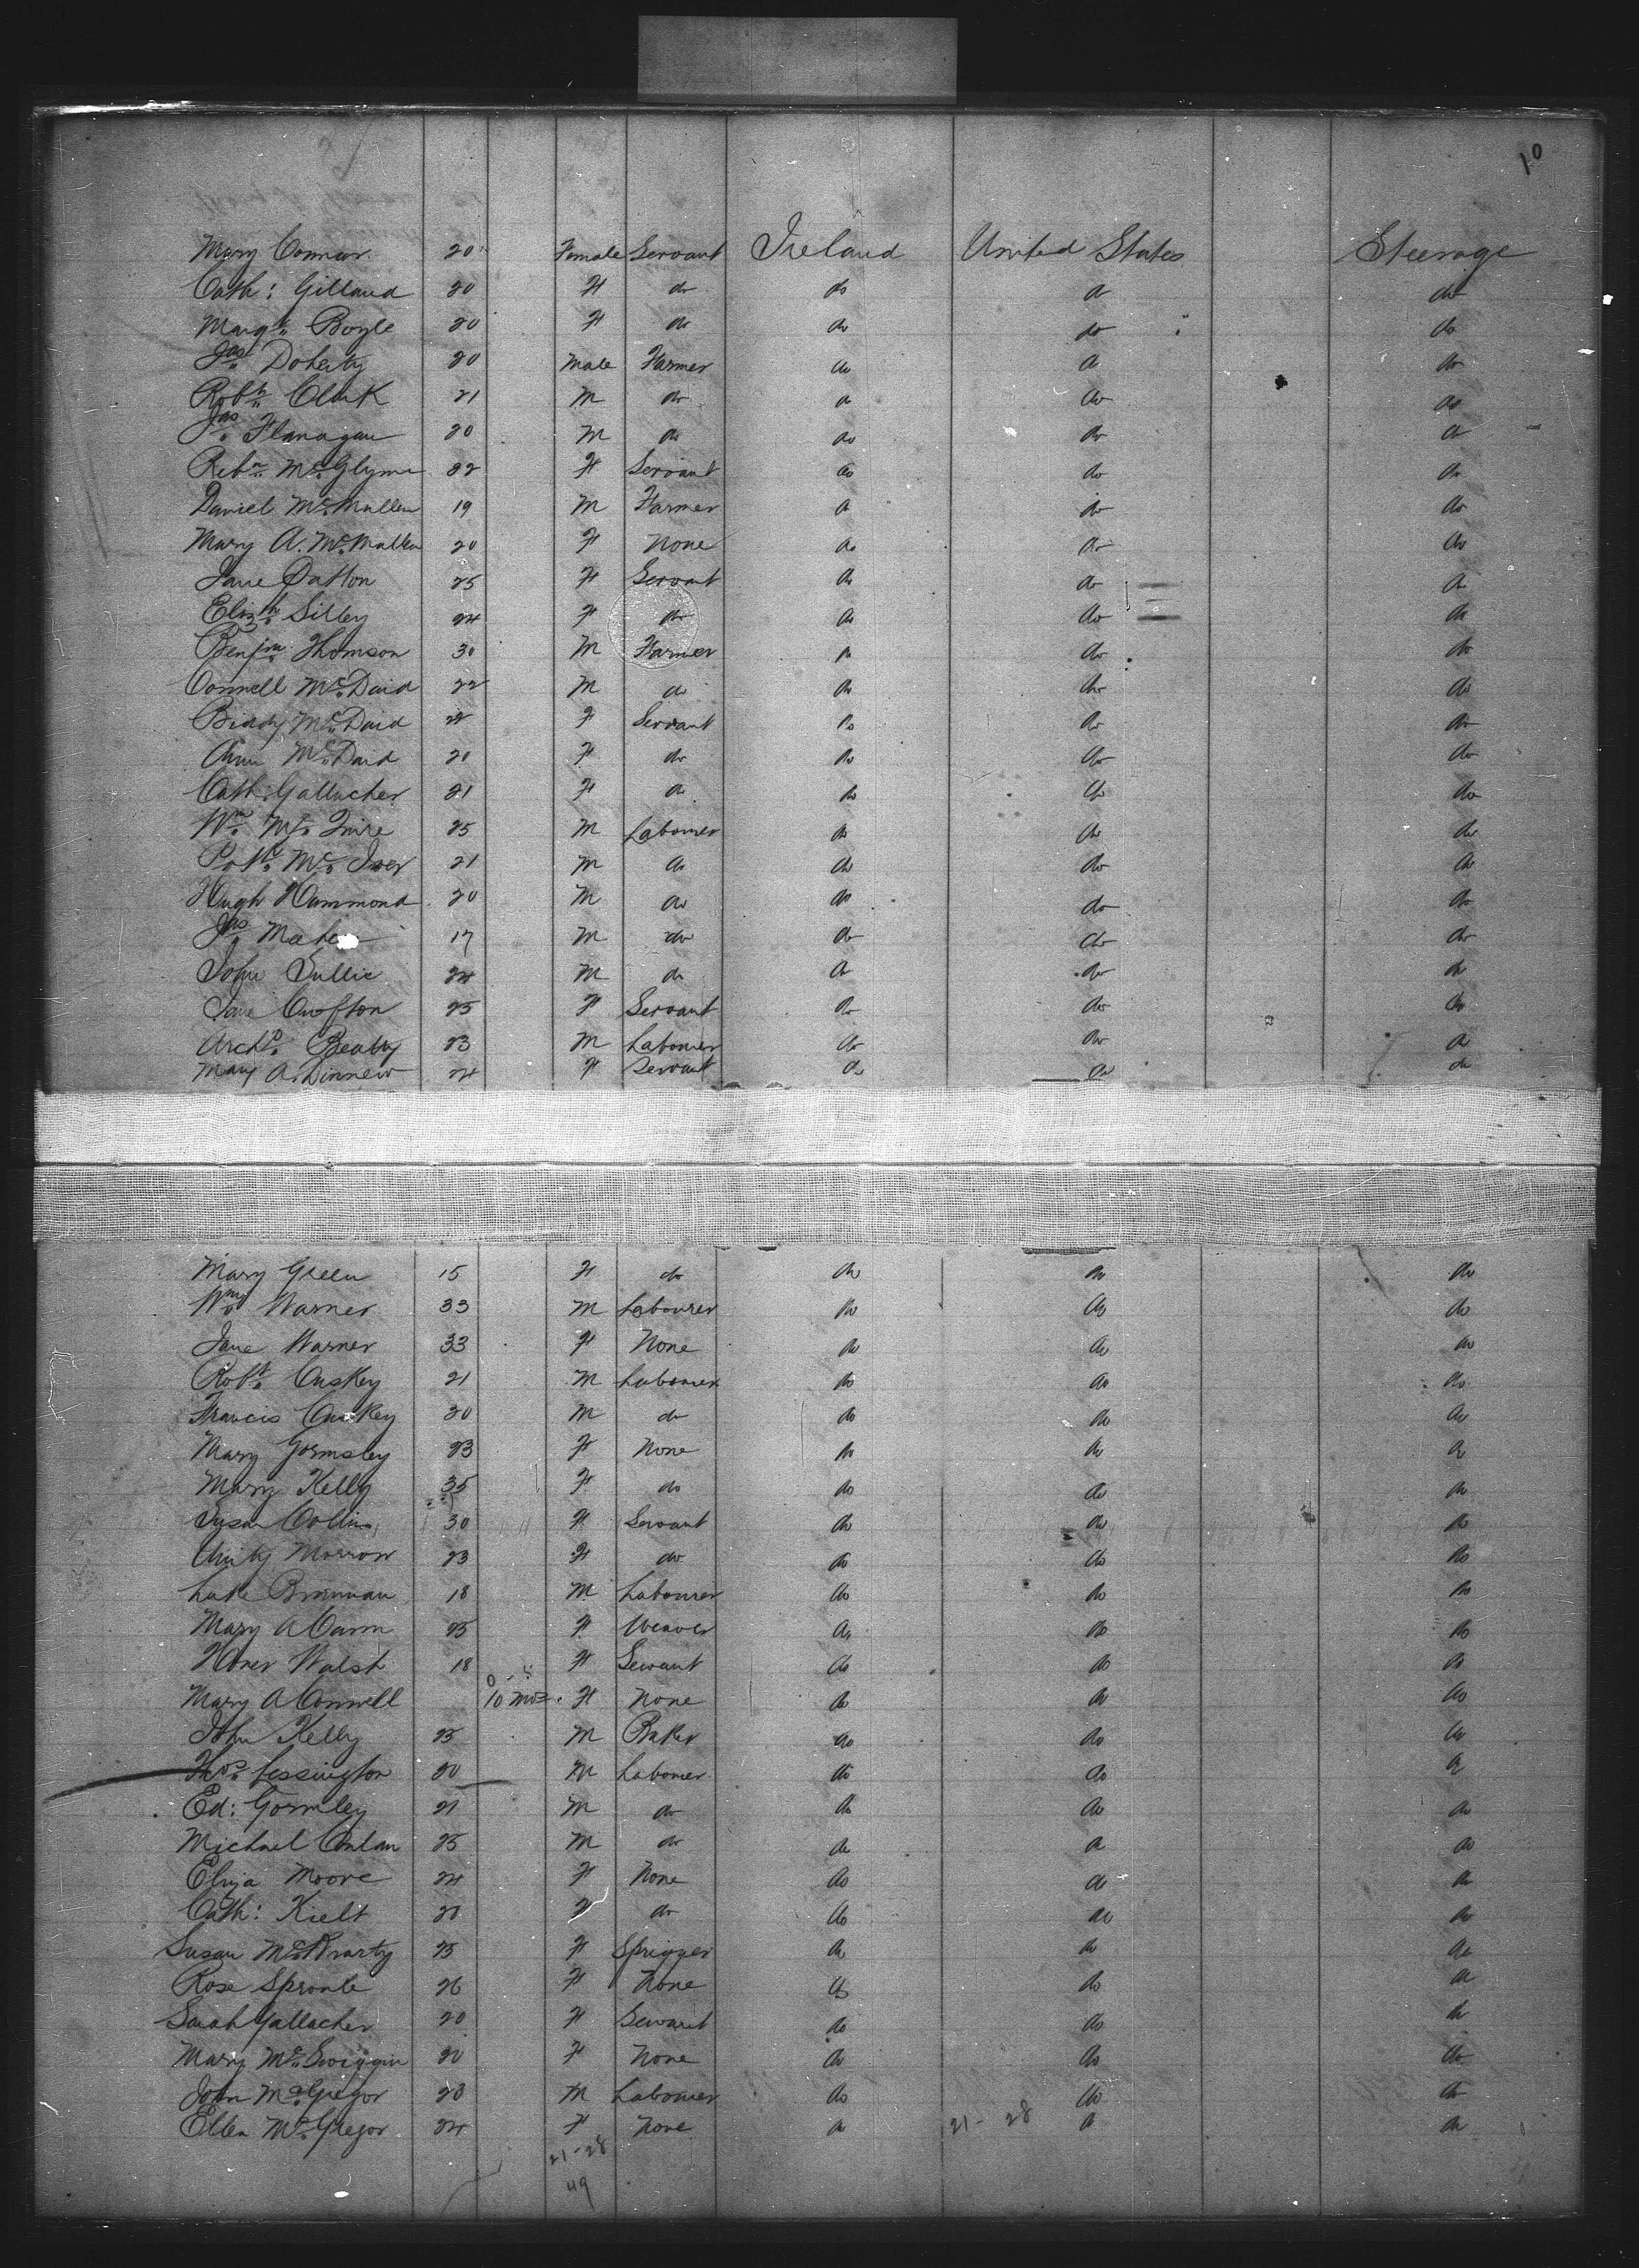 10
Mary Connor 20 Female Servant Ireland United States Steerage
Cath: Gilland 20 F do do do do
Margt. Boyle 20 F do do do do
Jas. Doherty 20 Male Farmer do do do
Robt. Clark 21 M do do do do
Jas. Flanagan 20 M do do do do
Reba. McGlynn 22 F Servant do do do
Daniel McMullen 19 M Farmer do do do
Mary A. McMullen 20 F None do do do
Jane Patton 25 F Servant do do do
Elizth. Silley 24 F do do do do
Benjm. Thomson 30 M Farmer do do do
Connell McDaid 22 M do do do do
Biddy McDaid 22 F Servant do do do
Ann McDaid 20 F do do do do
Cath: Gallacher 21 F do do do do
Wm. Mc 25 M Labourer do do do
Patk. McIver 21 M do do do do
Hugh Hammond 20 M do do do do
Jas. 17 M do do do do
John 24 M do do do do
Jane Crofton 25 F Servant do do do
Archd. Beatty 23 M Labourer do do do
Mary A. Dinnew 24 F Servant do do do
Mary Green 15 F do do do do
Wm. Warner 33 M Labourer do do do
Jane Warner 33 F None do do do
Robt. Cuskey 21 M Labourer do do do
Francis Cuskey 30 M do do do do
Mary Gormsley 23 F None do do do
Mary Kelly 35 F do do do do
Susan Collins 30 F Servant do do do
Unity Morrow 23 F do do do do
Luke Brannan 18 M Labourer do do do
Mary A Carm 25 F Weaver do do do
Honer Walsh 18 F Servant do do do
Mary A Connell 10 mos. F None do do do
John Kelly 25 M Baker do do do
Thos. Lessington 20 M Labourer do do do
Ed: Gormley 21 M do do do do
Michael Conlan 25 M do do do do
Eliza Moore 24 F None do do do
Cath: Kielt 20 F do do do do
Susan McKrarty 25 F Sprigger do do do
Rose Sproule 26 F None do do do
Sarah Gallacher 20 F Servant do do do
Mary McSwiggin 20 F None do do do
John McGregor 23 M Labourer do do do
Ellen McGregor 24 F None do 21-28 do do
21-28
49